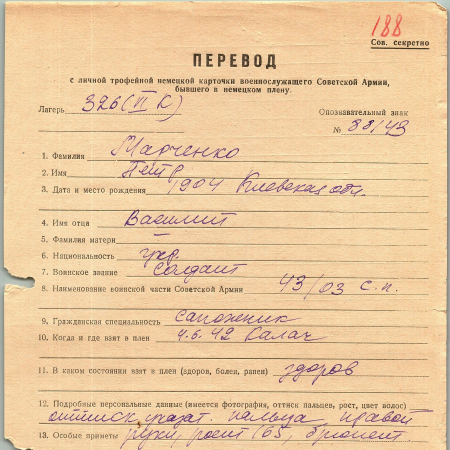 188
Сов. секретно
ПЕРЕВОД
с личной трофейной немецкой карточки военнослужащего Советской Армии,
бывшего в немецком плену.
Лагерь 326 (VI K)
Опознавательный знак
№ 88143
1. Фамилия Марченко
2. Имя Петр
3. Дата и место рождения 1904 Киевская обл.
4. Имя отца Василий
5. Фамилия матери —
6. Национальность укр.
7. Воинское звание солдат
8. Наименование воинской части Советской Армии 43/03 с.п.
9. Гражданская специальность сапожник
10. Когда и где взят в плен 4.6.42 Калач
11. В каком состоянии взят в плен (здоров, болен, ранен) здоров
12. Подробные персональные данные (имеется фотография, оттиск пальцев, рост, цвет волос)
оттиск указат. пальца правой
13. Особые приметы руки, рост 165, брюнет.